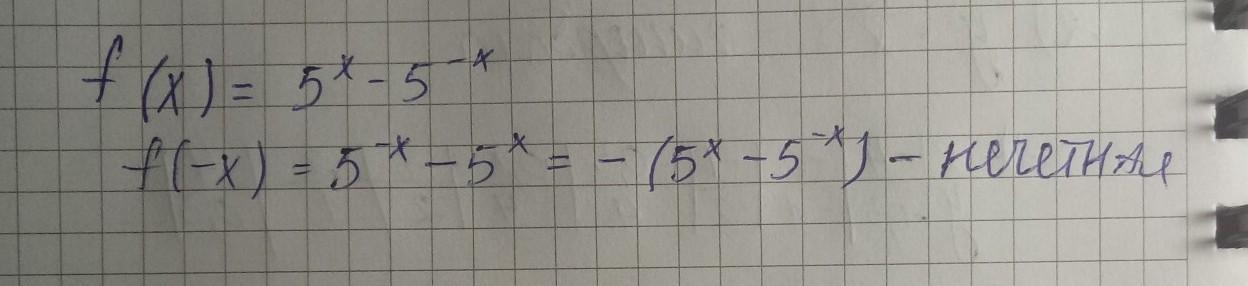 f(x) = 5^x - 5^-x
f(-x) = 5^-x - 5^x = - (5^x - 5^-x) - нечетная